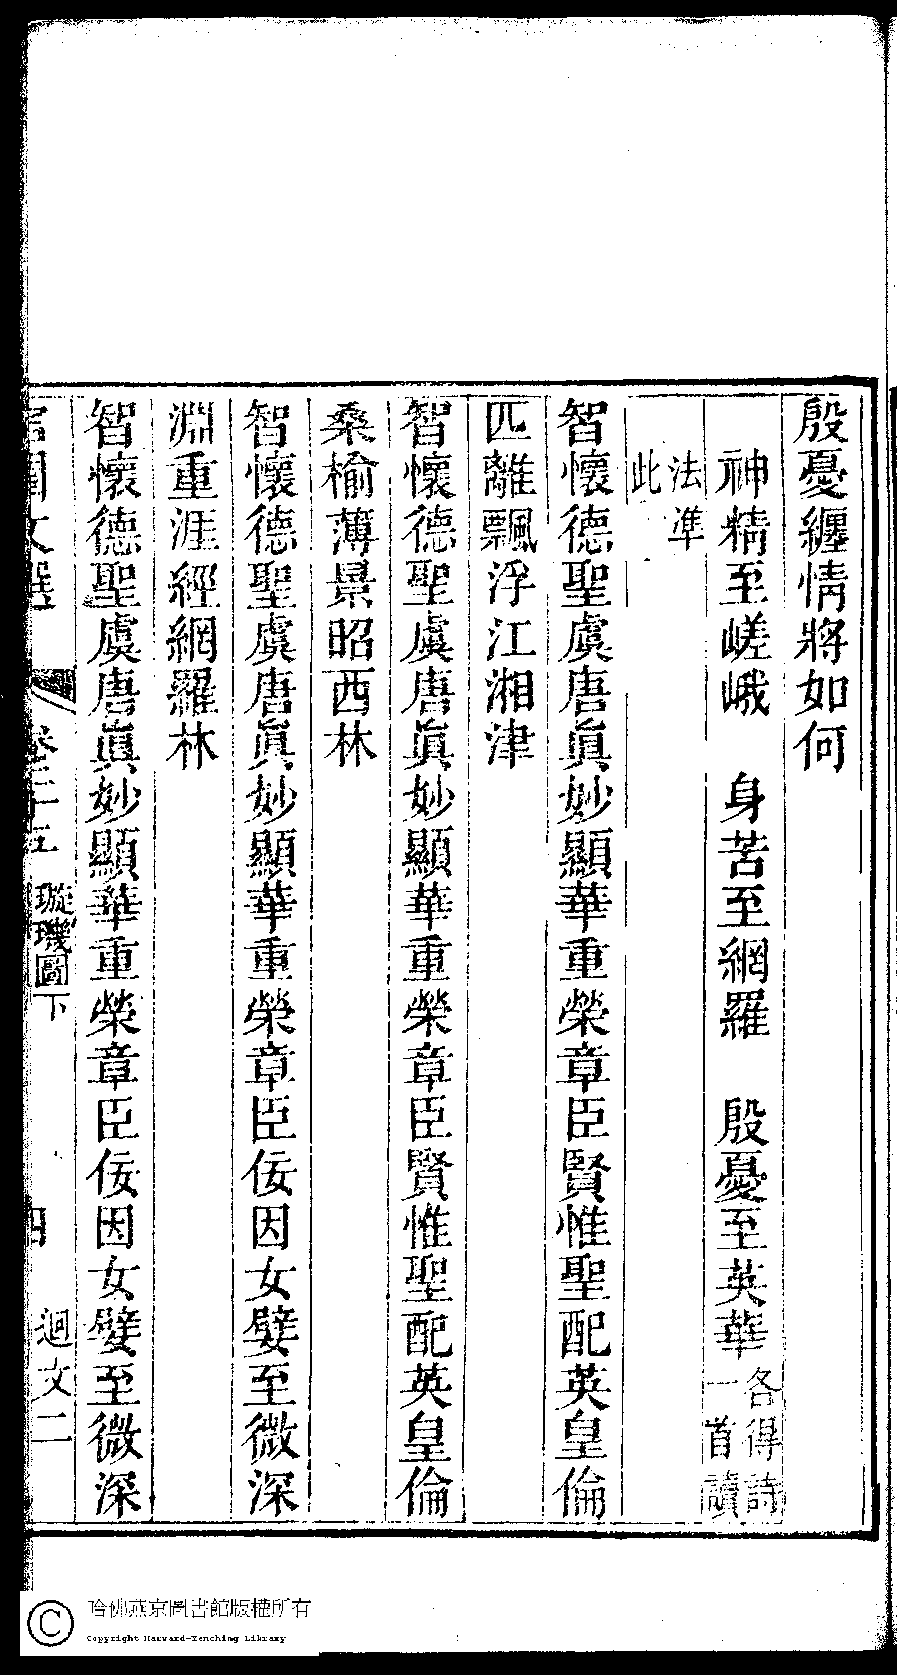 殷憂纏情將如何
神精至嵯峨　身苦至網羅　殷憂至英華各得詩一首讀
法準此
智懷德聖虞唐眞妙顯華重榮章臣賢惟聖配英皇倫
匹離飄浮江湘津
智懷德聖虞唐眞妙顯華重榮章臣賢惟聖配英皇倫
桑榆薄景昭西林
智懷德聖虞唐眞妙顯華重榮章臣佞因女嬖至微深
淵重涯經網羅林
智懷德聖虞唐眞妙顯華重榮章臣佞因女嬖至微深
文選　卷二十五　璇璣圖下　四　迴文二
哈佛燕京圖書館版權所有
Copyright Harvard-Yenching Library